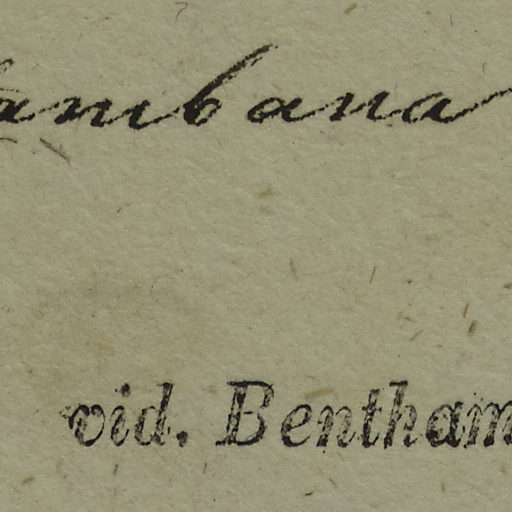 ambana
vid. Bentham